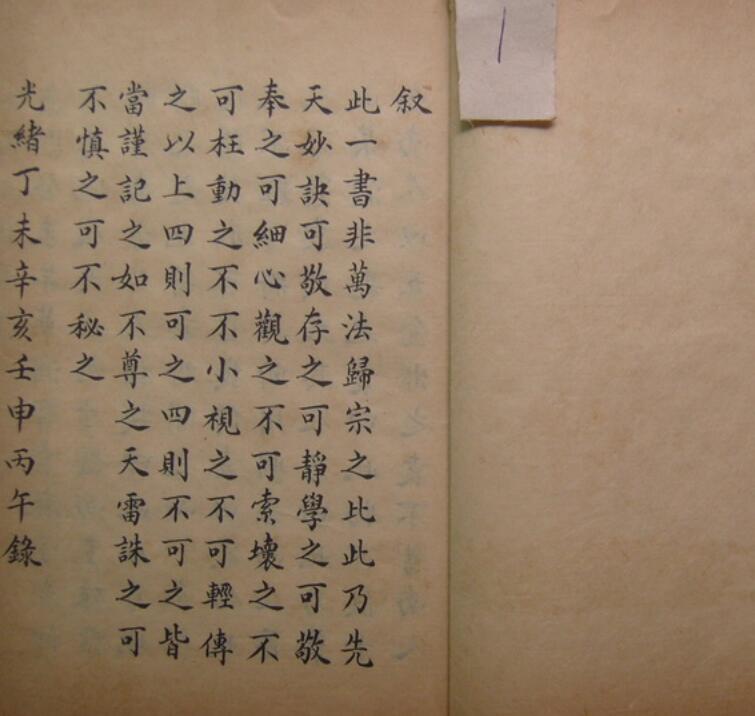 1
叙
此一書非萬法歸宗之比此乃先
天妙訣可敬存之可靜學之可敬
奉之可細心觀之不可索壞之不
可枉動之不不小視之不可輕傳
之以上四則可之四則不可之皆
當謹記之如不尊之天雷誅之可
不慎之可不秘之
光緒丁未辛亥壬申丙午錄